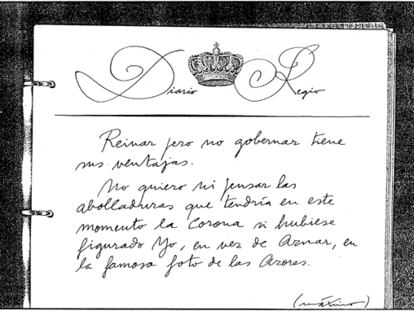 Diario Regio
Reinar pero no gobernar tiene
sus ventajas.
No quiero ni pensar las
abolladuras que tendría en este
momento la Corona si hubiese
figurado Yo, en vez de Aznar, en
la famosa foto de las Azores.
(máximo)